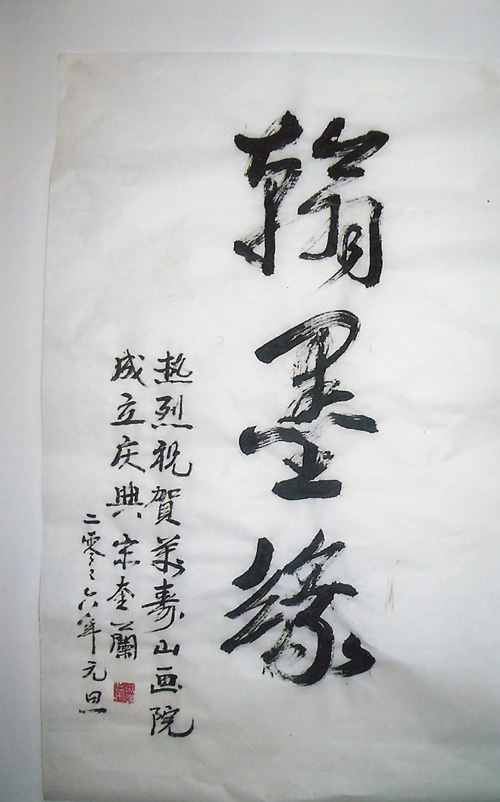 翰墨缘
热烈祝贺万寿山画院
成立庆典宋奎兰
二零零六年元旦